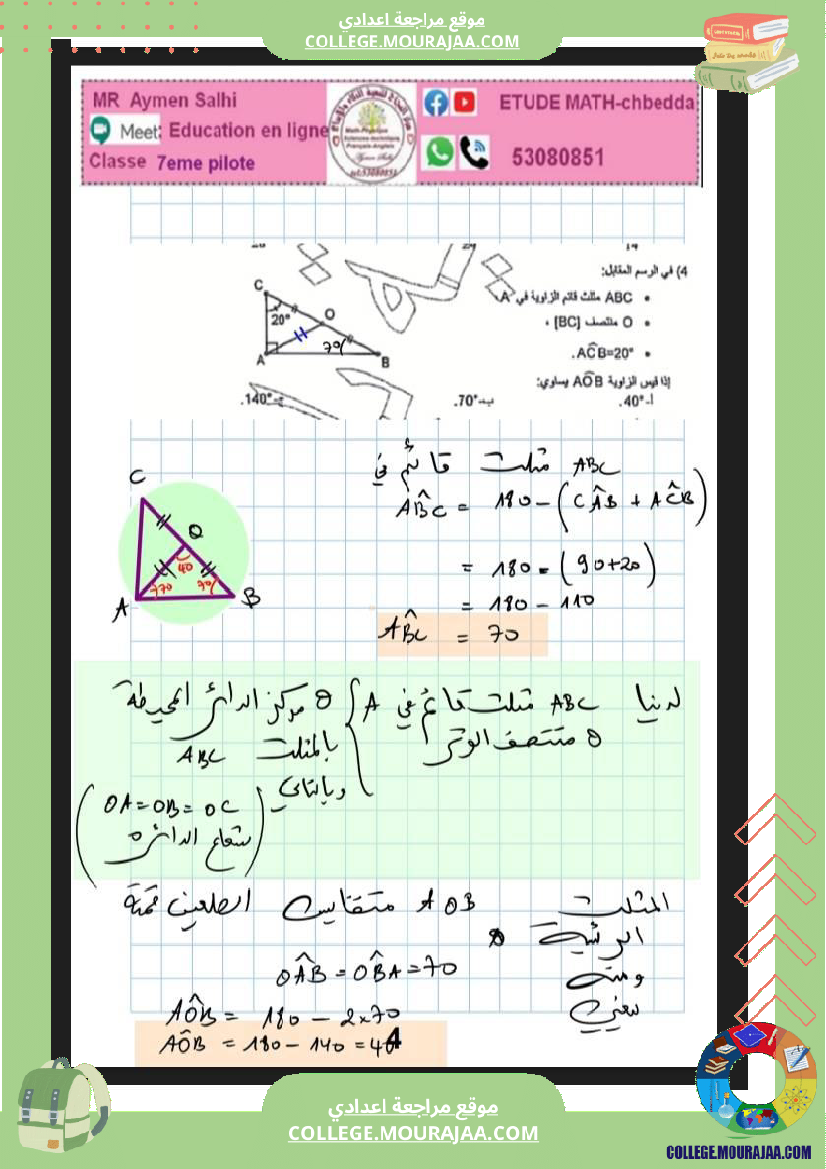 موقع مراجعة اعدادي
COLLEGE.MOURAJAA.COM
MR Aymen Salhi
ETUDE MATH-chbedda
Meet: Education en ligne
Classe 7eme pilote
53080851
4) في الرسم المقابل:
• ABC مثلث قائم الزاوية في A
• O منتصف [BC] ،
• AĈB=20°.
إذا قيس الزاوية AÔB يساوي:
أ- 40°.
ب- 70°.
ج- 140°.
C
20°
O
70
A
B
ABC مثلث قائم في
AB̂C = 180 - (CÂB + AĈB)
= 180 - (90+20)
= 180 - 110
AB̂C = 70
C
O
40
70
70
A
B
لدينا ABC مثلث قائم في A
O منتصف الوتر
O مركز الدائرة المحيطة
بالمثلث ABC
وبالتالي
(OA = OB = OC
شعاع الدائرة)
المثلث AOB متقايس الضلعين قمته
الرئيسية O
ومنه OÂB = OB̂A = 70
يعني
AÔB = 180 - 2x70
AÔB = 180 - 140 = 40
موقع مراجعة اعدادي
COLLEGE.MOURAJAA.COM
COLLEGE.MOURAJAA.COM